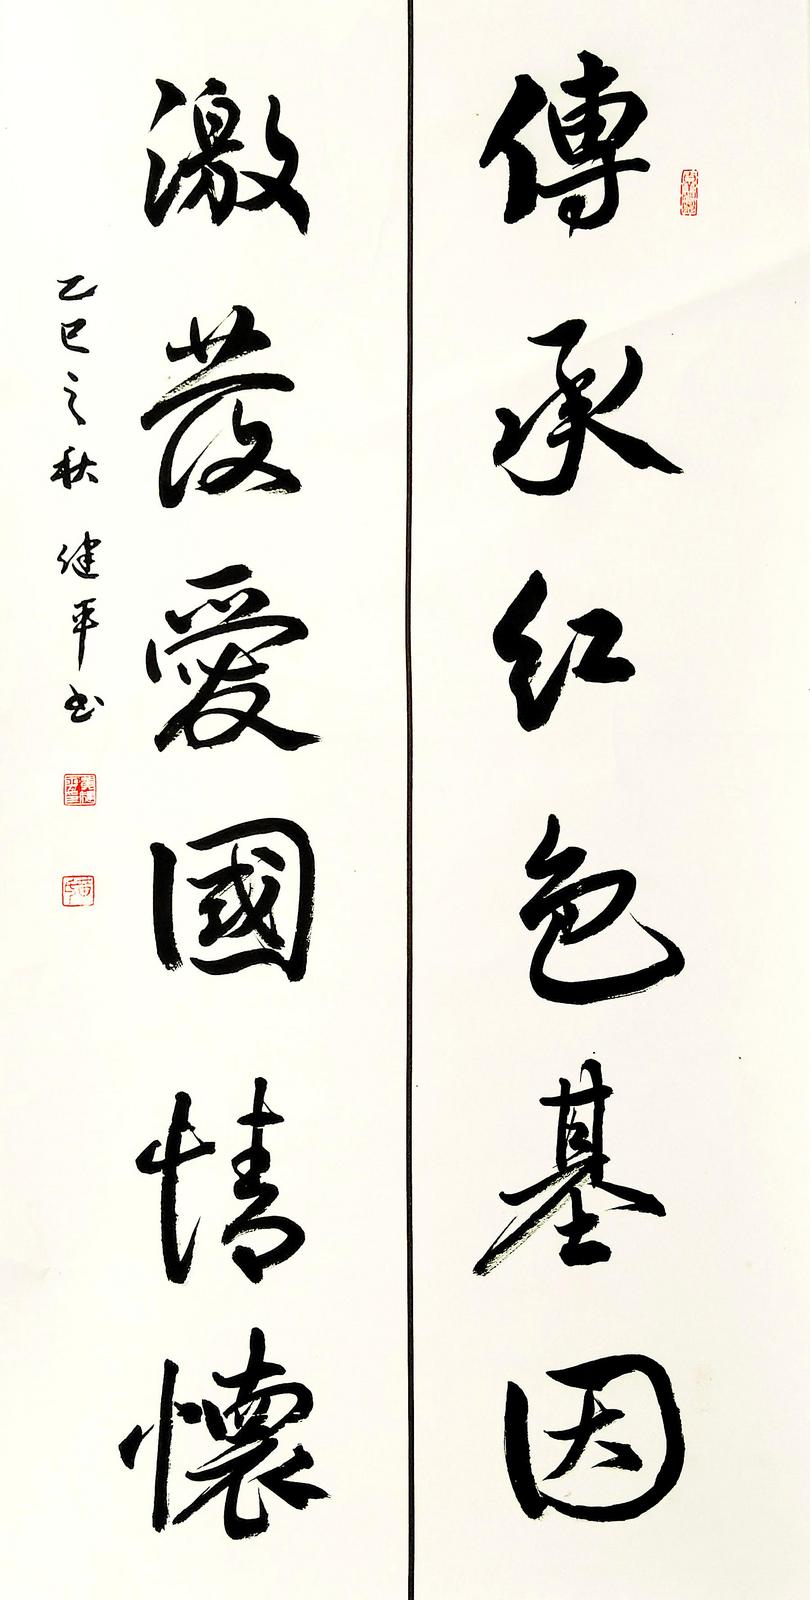 傳承红色基因
激發愛國情懷
乙巳之秋 健平书